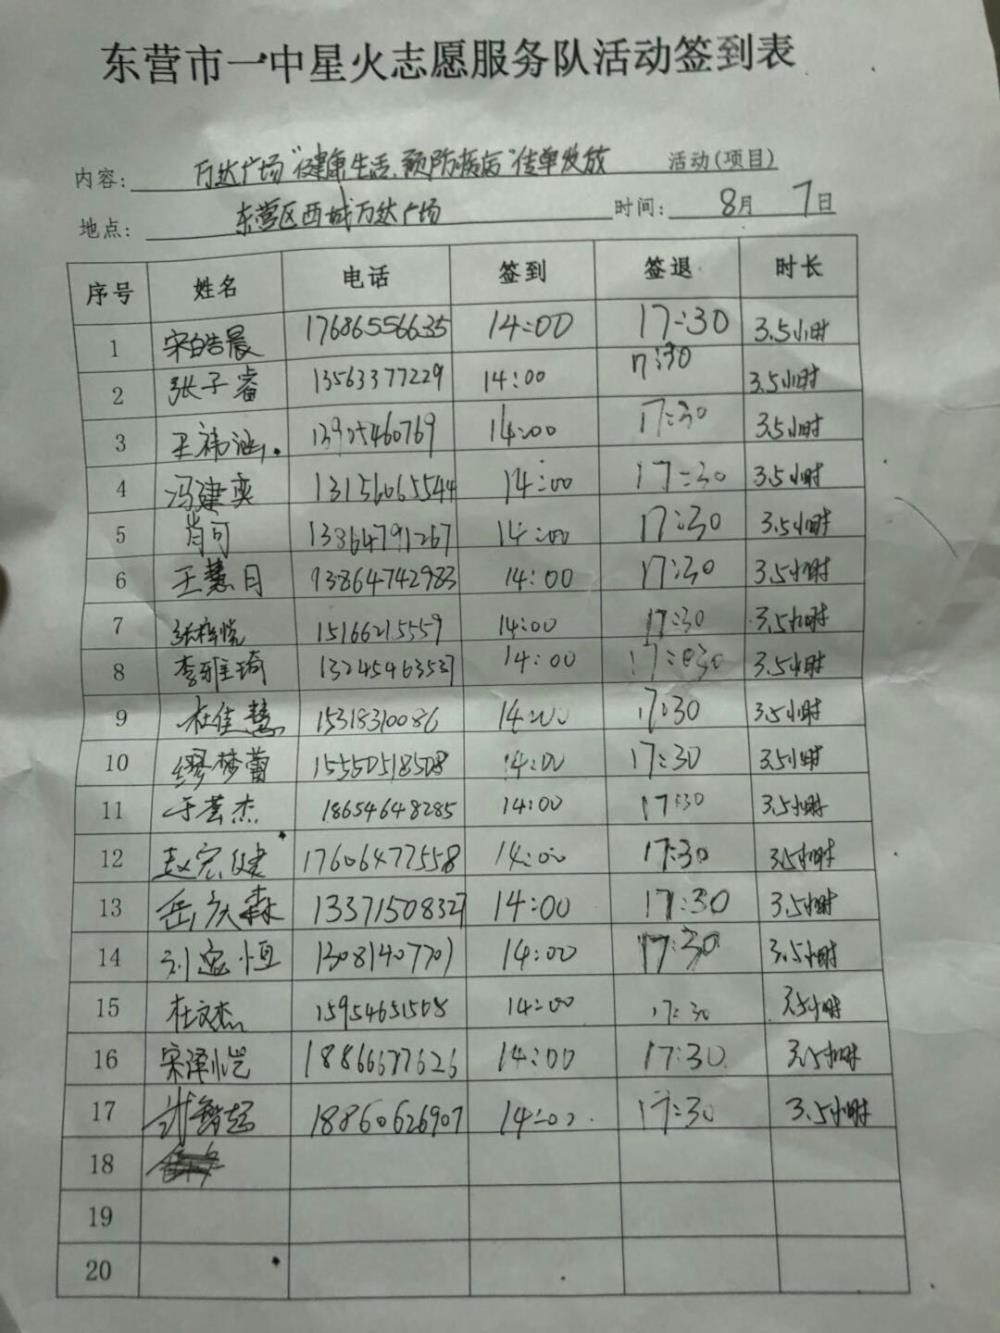 东营市一中星火志愿服务队活动签到表
内容: 万达广场“健康生活、预防疾病”传单发放 活动(项目)
地点: 东营区西城万达广场 时间: 8月 7日
序号 姓名 电话 签到 签退 时长
1 宋皓晨 17686556635 14:00 17:30 3.5小时
2 张子睿 13563377229 14:00 17:30 3.5小时
3 王祎涵 13905460769 14:00 17:30 3.5小时
4 冯建奕 13156065544 14:00 17:30 3.5小时
5 肖可 13364791267 14:00 17:30 3.5小时
6 王慧月 13864742983 14:00 17:30 3.5小时
7 张梓悦 15166215559 14:00 17:30 3.5小时
8 李雅琦 13245463537 14:00 17:30 3.5小时
9 杜佳慧 15318310086 14:00 17:30 3.5小时
10 缪梦蕾 15550518508 14:00 17:30 3.5小时
11 于芸杰 18654648285 14:00 17:30 3.5小时
12 赵宏健 17606472558 14:00 17:30 3.5小时
13 岳庆森 13371508327 14:00 17:30 3.5小时
14 刘 恒 13081407701 14:00 17:30 3.5小时
15 杜文杰 15954651508 14:00 17:30 3.5小时
16 宋泽恺 18866677626 14:00 17:30 3.5小时
17 18860626907 14:00 17:30 3.5小时
18
19
20